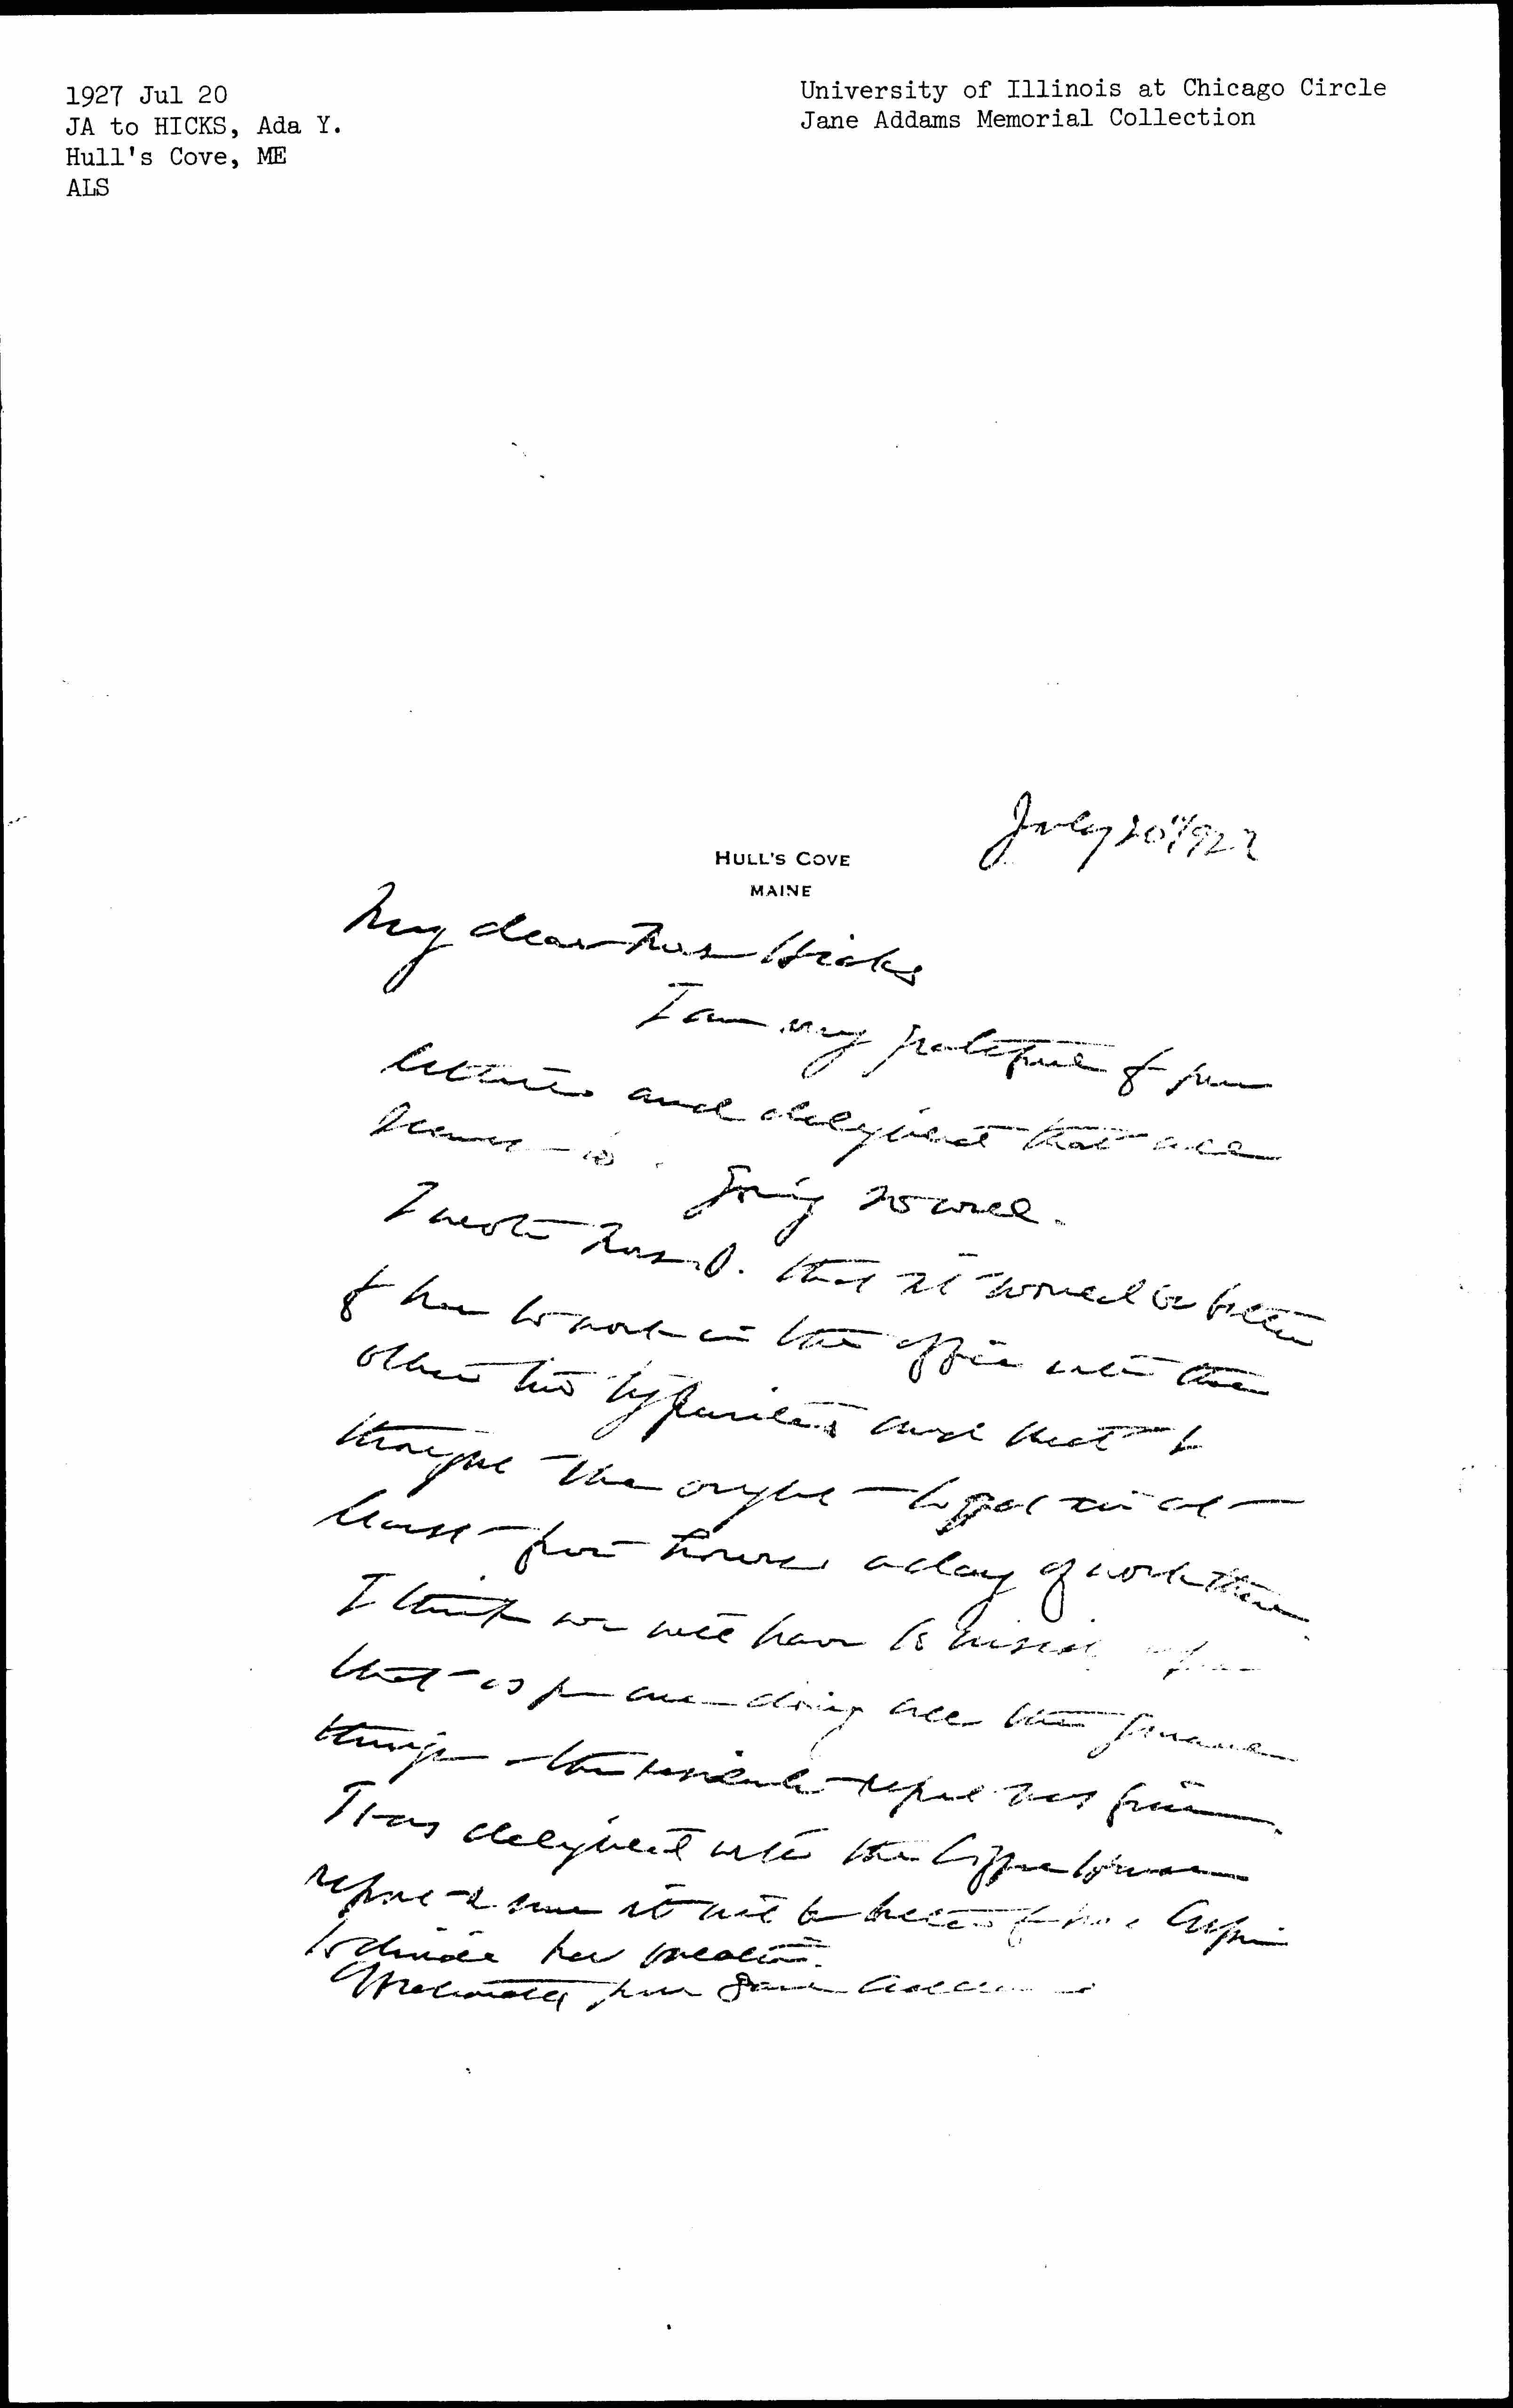 1927 Jul 20
JA to HICKS, Ada Y.
Hull's Cove, ME
ALS
University of Illinois at Chicago Circle
Jane Addams Memorial Collection
July 20" 1927
HULL'S COVE
MAINE
My dear Mrs Hicks
I am very grateful for your
letters and delighted that all
seems going so well.
I wrote Mrs that it would be better
for her to work in the office with the
other two typewriters and that I
thought she ought to get in at
least four hours a day of work there.
I think we will have to insist upon
that as you are doing all the finance
things - the
I was delighted with the
report sure it will be better for her
to divide her vacation.
Affectionately yours Jane Addams